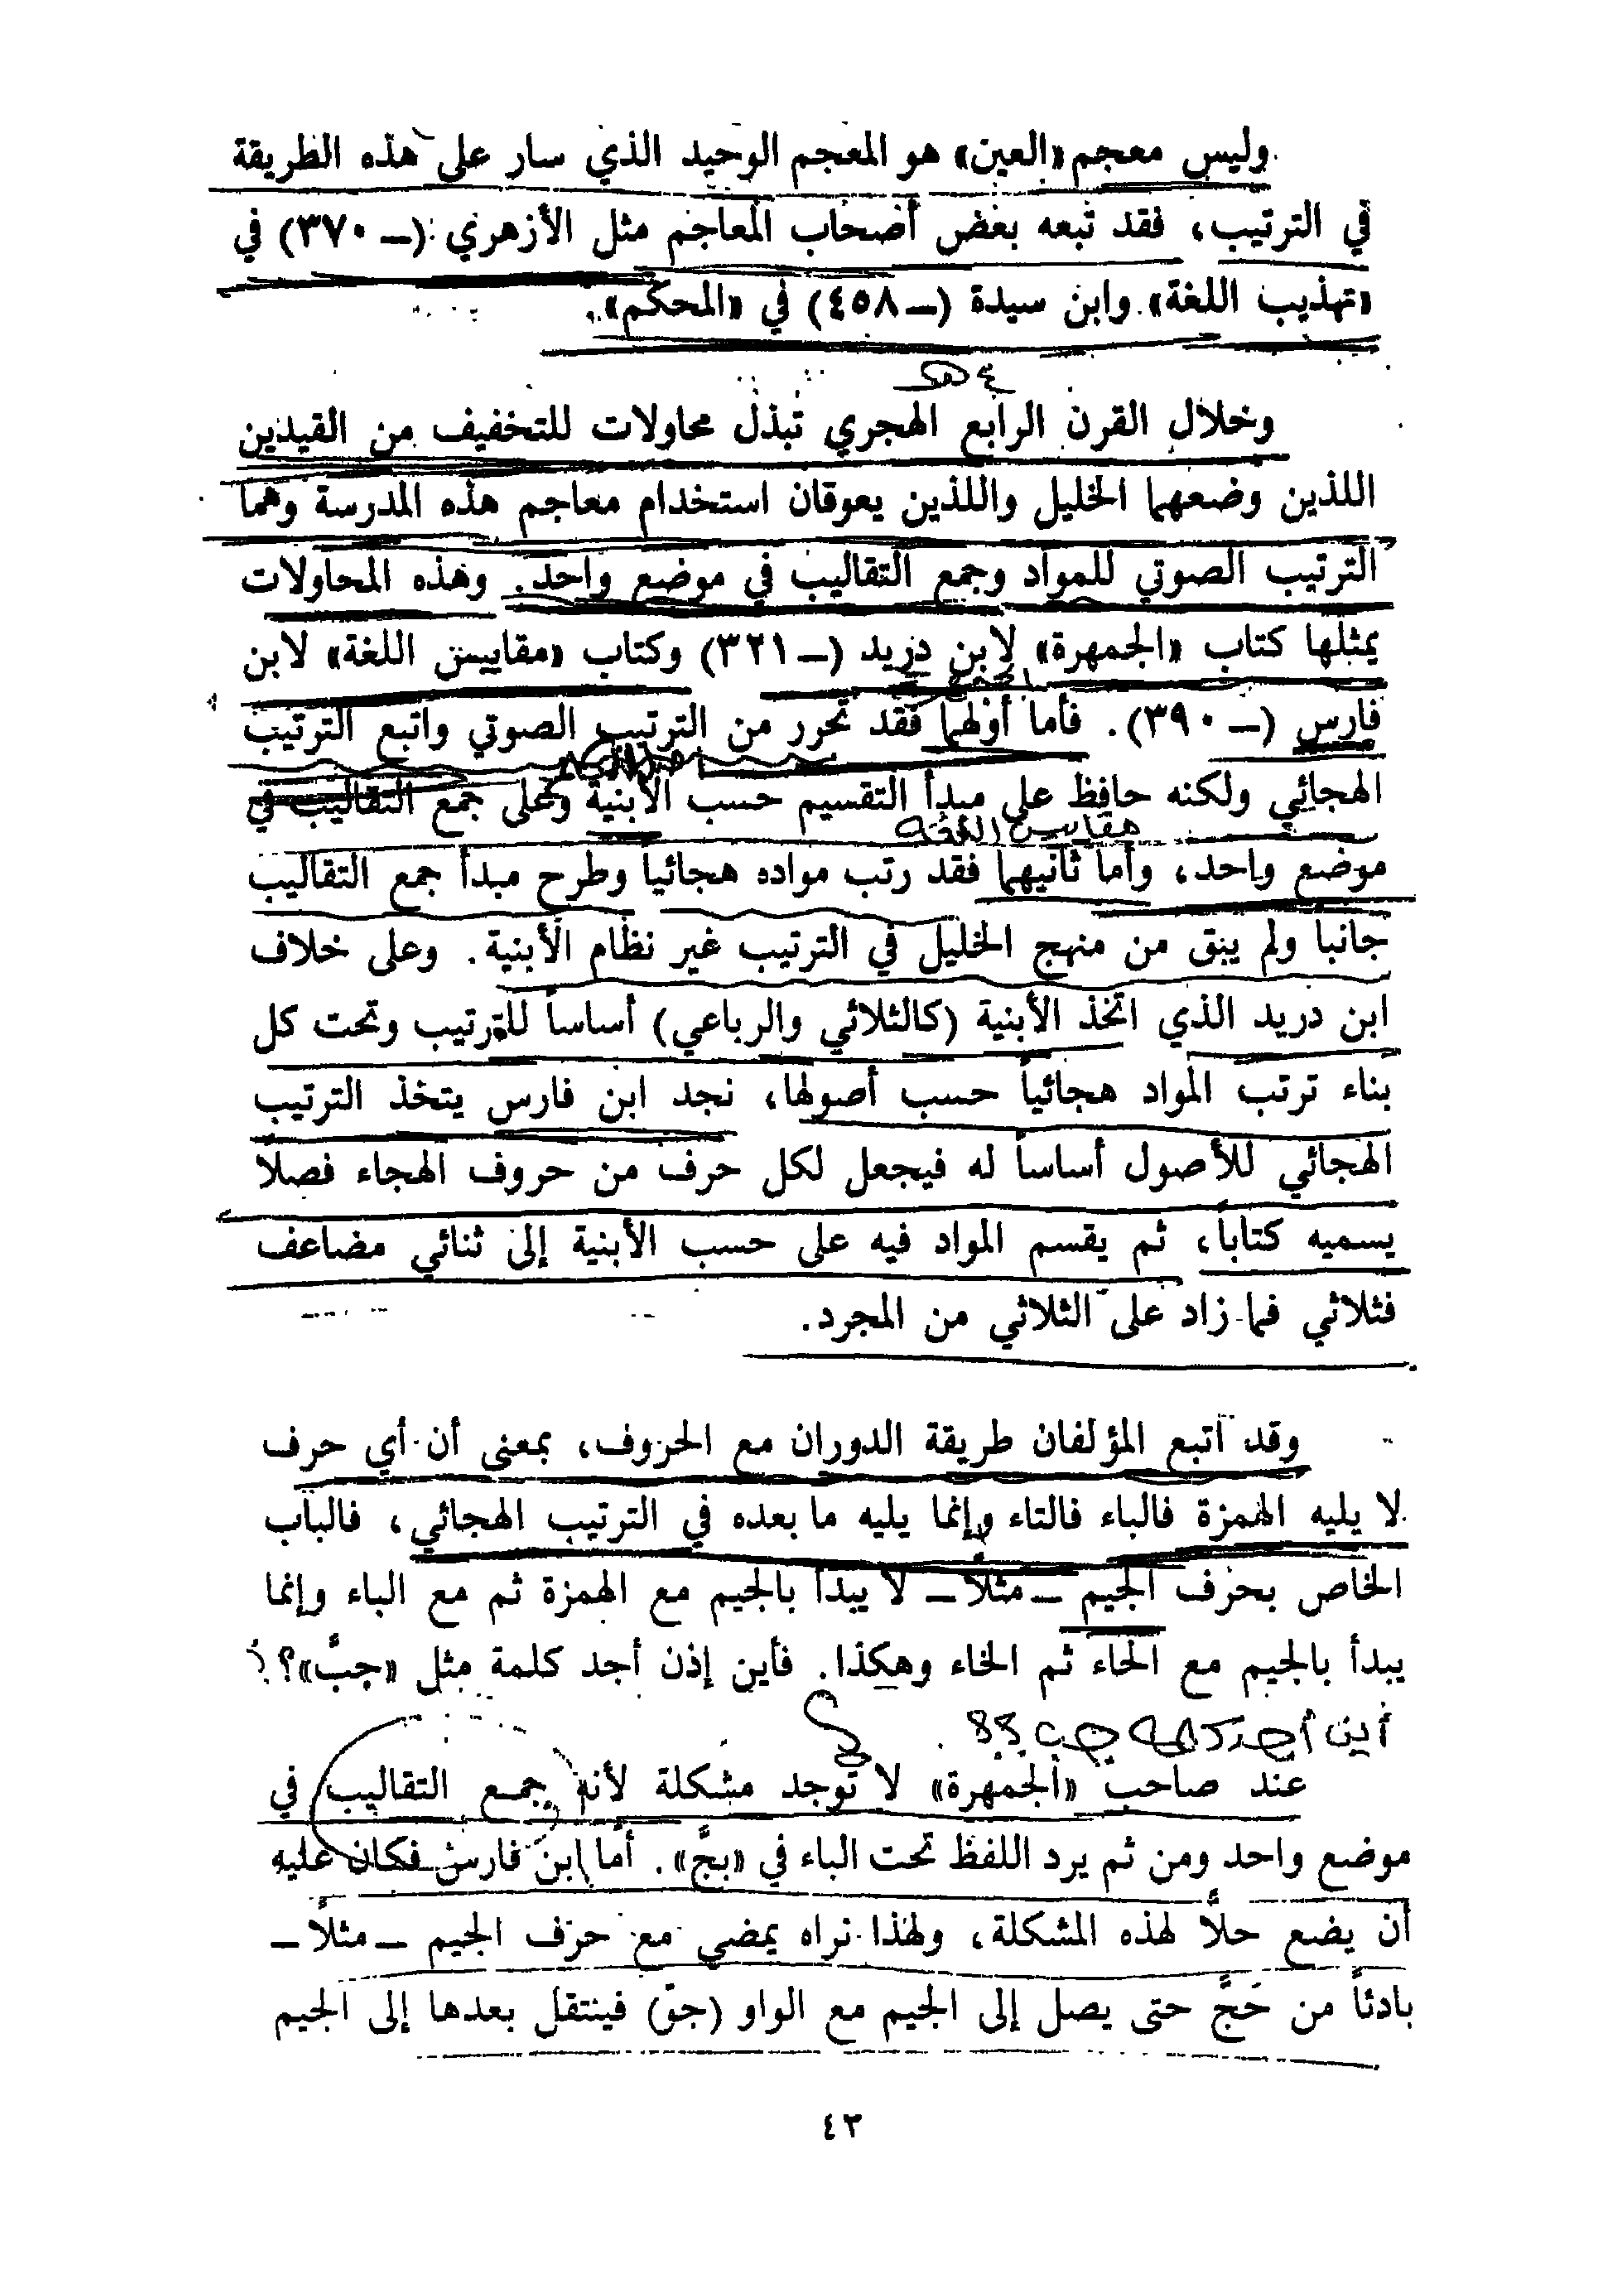 وليس معجم «العين» هو المعجم الوحيد الذي سار على هذه الطريقة
في الترتيب، فقد تبعه بعض أصحاب المعاجم مثل الأزهري (ـ ٣٧٠) في
«تهذيب اللغة» وابن سيدة (ـ ٤٥٨) في «المحكم».
٤ هـ
وخلال القرن الرابع الهجري تبذل محاولات للتخفيف من القيدين
اللذين وضعهما الخليل واللذين يعوقان استخدام معاجم هذه المدرسة وهما
الترتيب الصوتي للمواد وجمع التقاليب في موضع واحد. وهذه المحاولات
يمثلها كتاب «الجمهرة» لابن دريد (ـ ٣٢١) وكتاب «مقاييس اللغة» لابن
فارس (ـ ٣٩٠). فأما أولهما فقد تحرر من الترتيب الصوتي واتبع الترتيب
الهجائي ولكنه حافظ على مبدأ التقسيم حسب الأبنية وعلى جمع التقاليب في
مقاييس اللغة
موضع واحد، وأما ثانيهما فقد رتب مواده هجائياً وطرح مبدأ جمع التقاليب
جانباً ولم يبق من منهج الخليل في الترتيب غير نظام الأبنية. وعلى خلاف
ابن دريد الذي اتخذ الأبنية (كالثلاثي والرباعي) أساساً للترتيب وتحت كل
بناء ترتب المواد هجائياً حسب أصولها، نجد ابن فارس يتخذ الترتيب
الهجائي للأصول أساساً له فيجعل لكل حرف من حروف الهجاء فصلاً
يسميه كتاباً، ثم يقسم المواد فيه على حسب الأبنية إلى ثنائي مضاعف
فثلاثي فما زاد على الثلاثي من المجرد.
وقد اتبع المؤلفان طريقة الدوران مع الحروف، بمعنى أن أي حرف
لا يليه الهمزة فالباء فالتاء وإنما يليه ما بعده في الترتيب الهجائي، فالباب
الخاص بحرف الجيم ـ مثلاً ـ لا يبدأ بالجيم مع الهمزة ثم مع الباء وإنما
يبدأ بالجيم مع الحاء ثم الخاء وهكذا. فأين إذن أجد كلمة مثل «جبَّ»؟
أين أجد كلمة جب ؟؟
عند صاحب «الجمهرة» لا توجد مشكلة لأنه جمع التقاليب في
موضع واحد ومن ثم يرد اللفظ تحت الباء في «بجَّ». أما ابن فارس فكان عليه
أن يضع حلاًّ لهذه المشكلة، ولهذا نراه يمضي مع حرف الجيم ـ مثلاً ـ
بادئاً من حَجَّ حتى يصل إلى الجيم مع الواو (جوّ) فينتقل بعدها إلى الجيم
٤٢